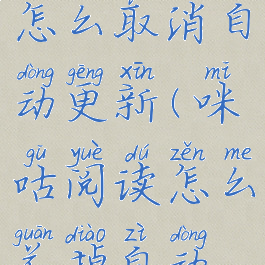 怎么取消自
dòng gēng xīn mī
动更新(咪
gū yuè dú zěn me
咕阅读怎么
guān diào zì dòng
关掉自动